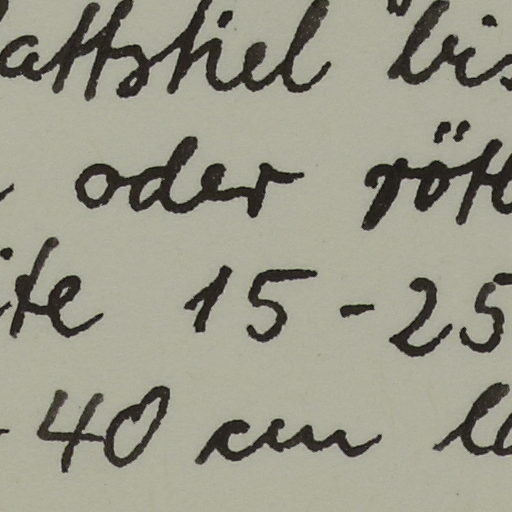 attstiel bis
oder röt
ite 15-25
-40 cm la